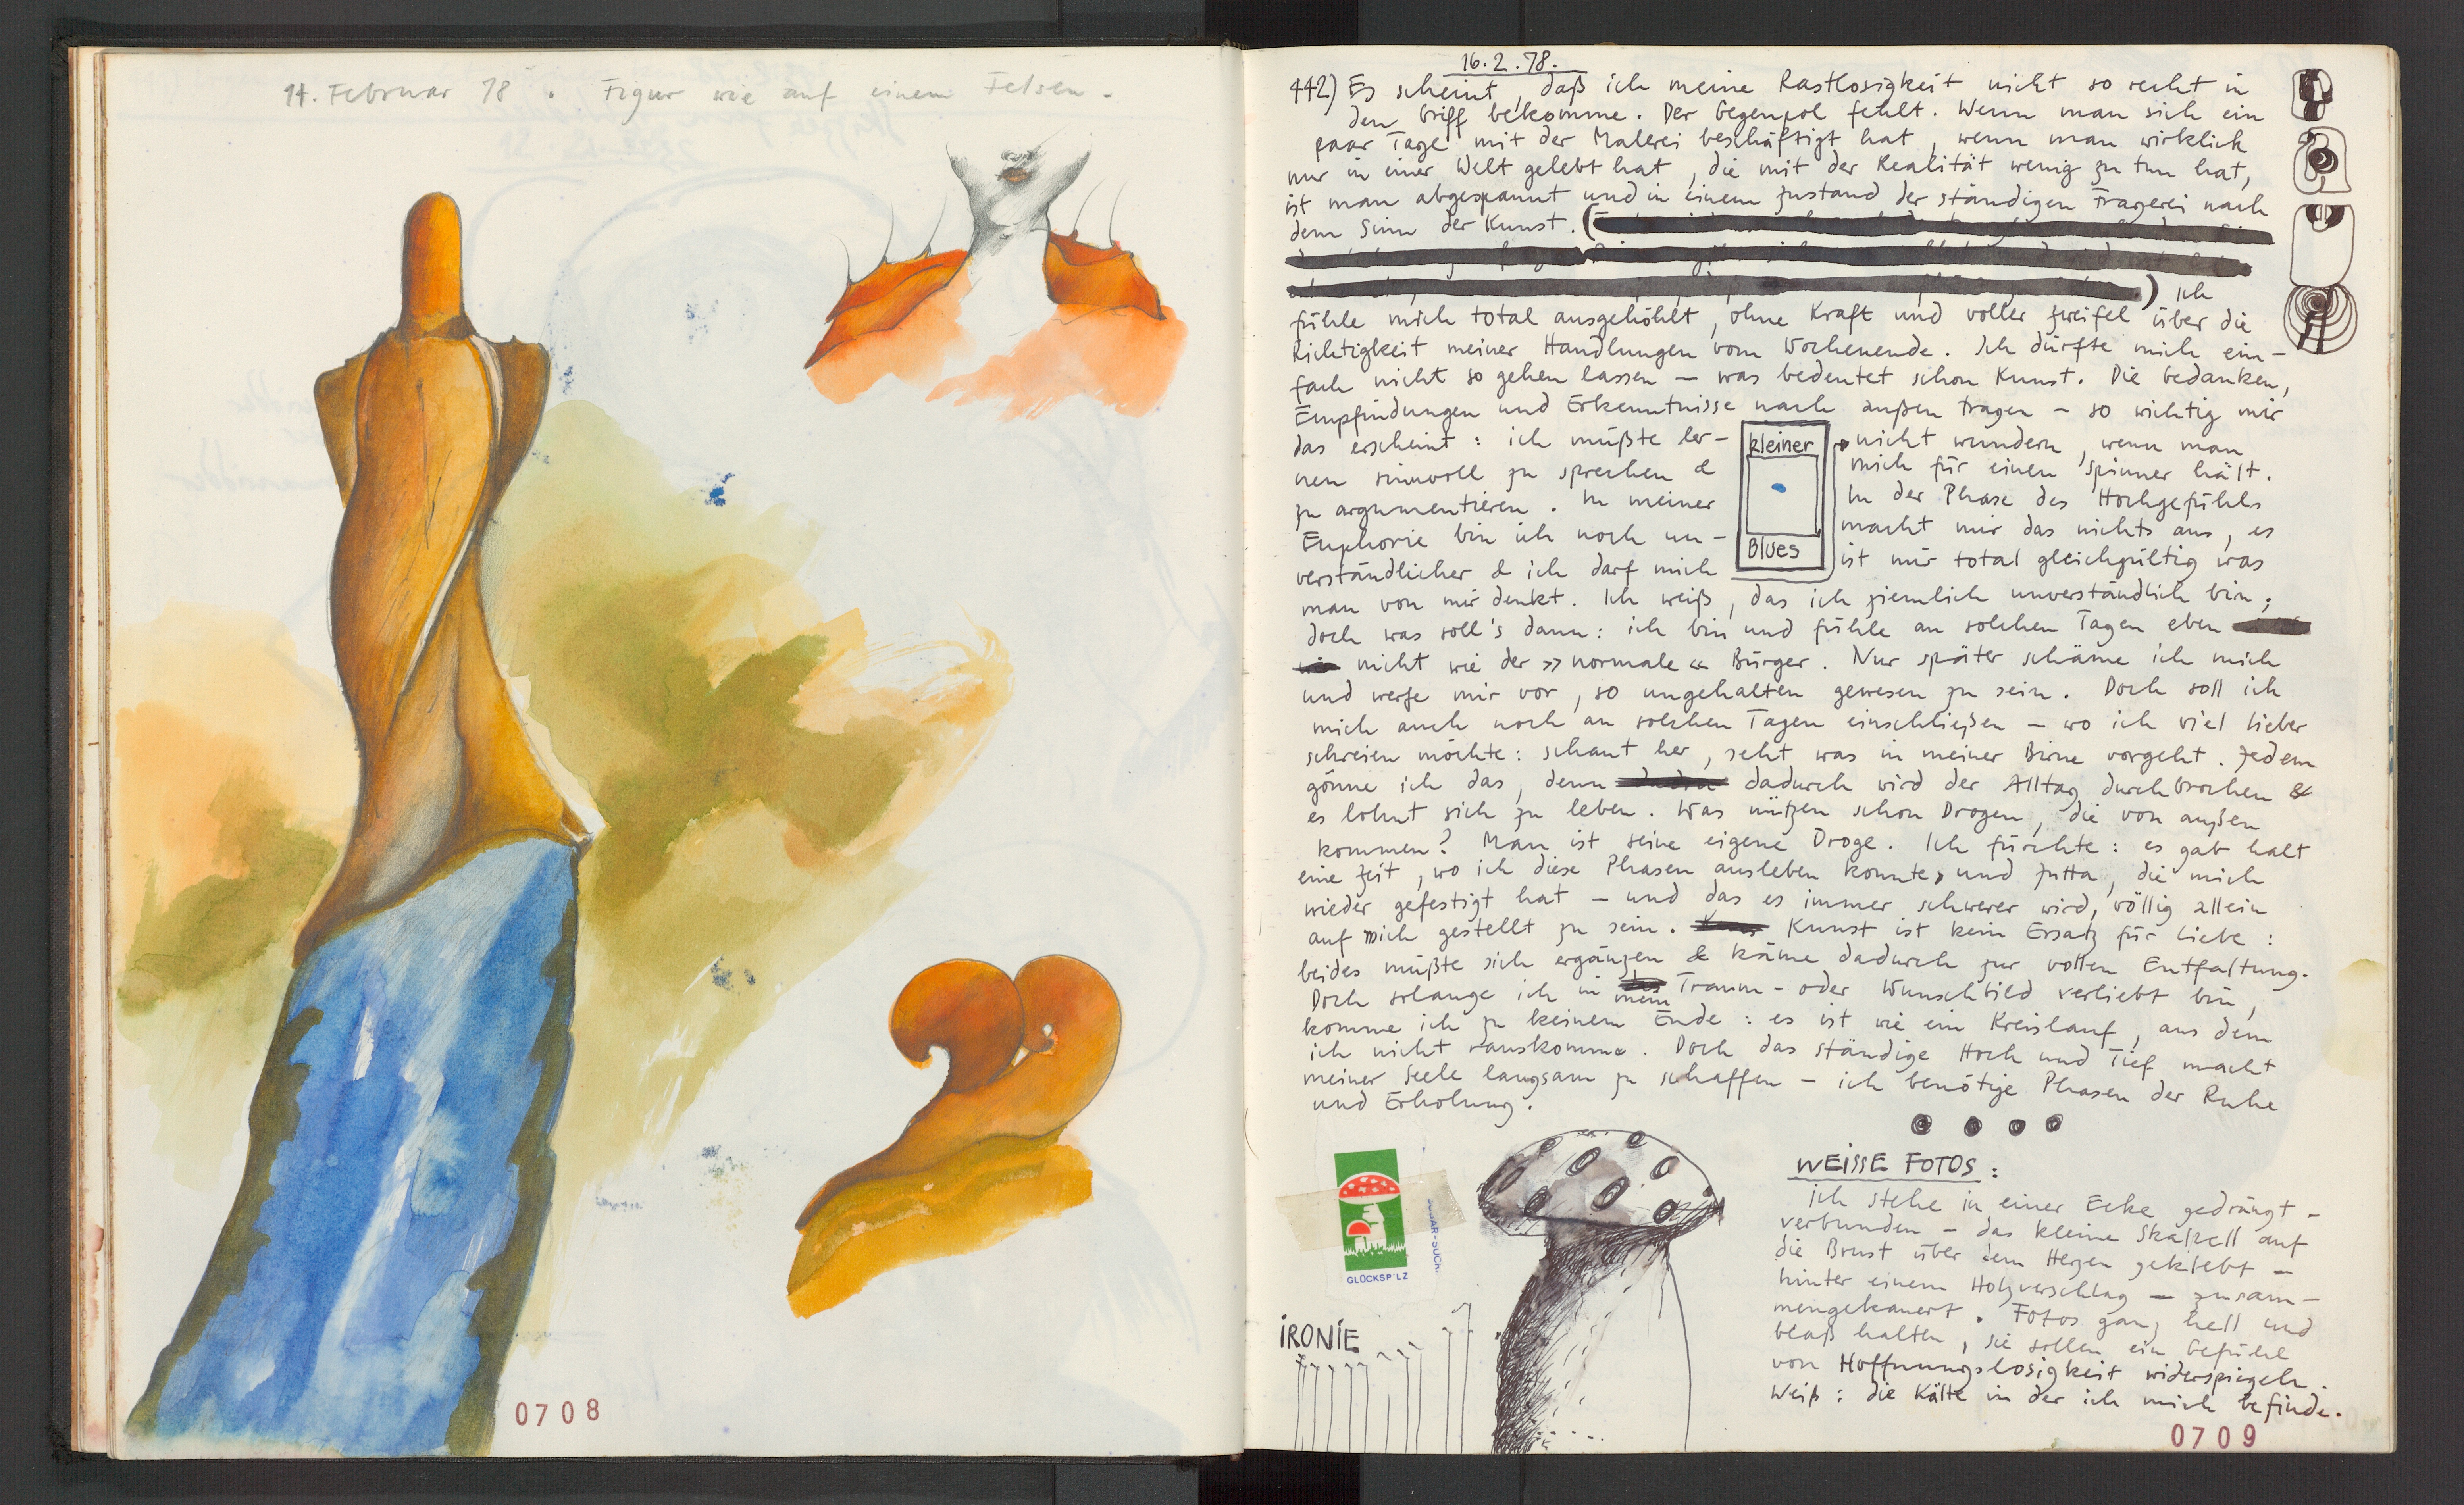 14. Februar 78 . Figur wie auf einem Felsen.
0708
16.2.78.
442) Es scheint, daß ich meine Rastlosigkeit nicht so recht in
den Griff bekomme. Der Gegenpol fehlt. Wenn man sich ein
paar Tage mit der Malerei beschäftigt hat, wenn man wirklich
nur in einer Welt gelebt hat, die mit der Realität wenig zu tun hat,
ist man abgespannt und in einem Zustand der ständigen Fragerei nach
dem Sinn der Kunst. (
) Ich
fühle mich total ausgehöhlt, ohne Kraft und voller Zweifel über die
Richtigkeit meiner Handlungen vom Wochenende. Ich dürfte mich ein-
fach nicht so gehen lassen – was bedeutet schon Kunst. Die Gedanken,
Empfindungen und Erkenntnisse nach außen tragen – so wichtig mir
das erscheint: ich müßte ler-
nen sinnvoll zu sprechen &
zu argumentieren. In meiner
Euphorie bin ich noch un-
verständlicher & ich darf mich
kleiner
Blues
nicht wundern, wenn man
mich für einen Spinner hält.
In der Phase des Hochgefühls
macht mir das nichts aus, es
ist mir total gleichgültig was
man von mir denkt. Ich weiß, das ich ziemlich unverständlich bin;
doch was soll's dann: ich bin und fühle an solchen Tagen eben
nicht wie der »normale« Bürger. Nur später schäme ich mich
und werfe mir vor, so ungehalten gewesen zu sein. Doch soll ich
mich auch noch an solchen Tagen einschließen – wo ich viel lieber
schreien möchte: schaut her, seht was in meiner Birne vorgeht. Jedem
gönne ich das, denn dadurch wird der Alltag durchbrochen &
es lohnt sich zu leben. Was nützen schon Drogen, die von außen
kommen? Man ist seine eigene Droge. Ich fürchte: es gab halt
eine Zeit, wo ich diese Phasen ausleben konnte, und Jutta, die mich
wieder gefestigt hat – und das es immer schwerer wird, völlig allein
auf mich gestellt zu sein. Kunst ist kein Ersatz für Liebe:
beides müßte sich ergänzen & käme dadurch zur vollen Entfaltung.
Doch solange ich in mein Traum- oder Wunschbild verliebt bin,
komme ich zu keinem Ende: es ist wie ein Kreislauf, aus dem
ich nicht rauskomme. Doch das ständige Hoch und Tief macht
meiner Seele langsam zu schaffen – ich benötige Phasen der Ruhe
und Erholung.
GLÜCKSPILZ
IRONIE
WEISSE FOTOS:
Ich stehe in einer Ecke gedrängt –
verbunden – das kleine Skalpell auf
die Brust über dem Herzen geklebt –
hinter einem Holzverschlag – zusam-
mengekauert. Fotos ganz hell und
blaß halten, sie sollen ein Gefühl
von Hoffnungslosigkeit widerspiegeln.
Weiß: die Kälte in der ich mich befinde.
0709